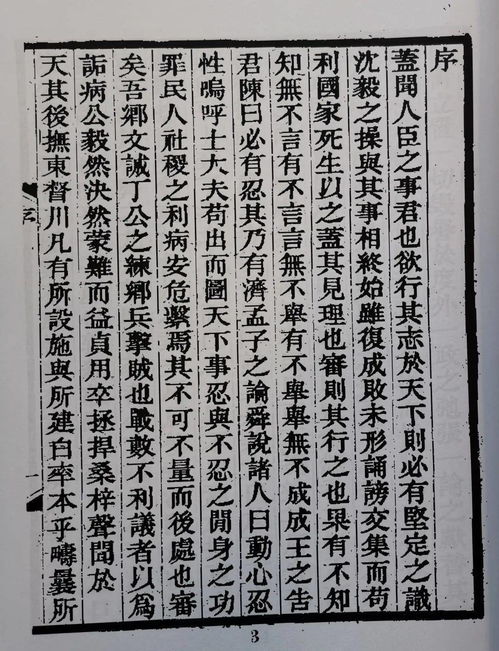 序
蓋聞人臣之事君也欲行其志於天下則必有堅定之識
沈毅之操與其事相終始雖復成敗未形誦謗交集而苟
利國家死生以之蓋其見理也審則其行之也果有不知
知無不言有不言言無不舉有不舉舉無不成成王之告
君陳曰必有忍其乃有濟孟子之論舜說諸人曰動心忍
性嗚呼士大夫苟出而圖天下事忍與不忍之閒身之功
罪民人社稷之利病安危繫焉其不可不量而後處也審
矣吾鄉文誠丁公之練鄉兵擊賊也戰數不利議者以爲
詬病公毅然決然蒙難而益貞用卒拯捍桑梓聲聞於
天其後撫東督川凡有所設施與所建白率本乎疇曩所
3